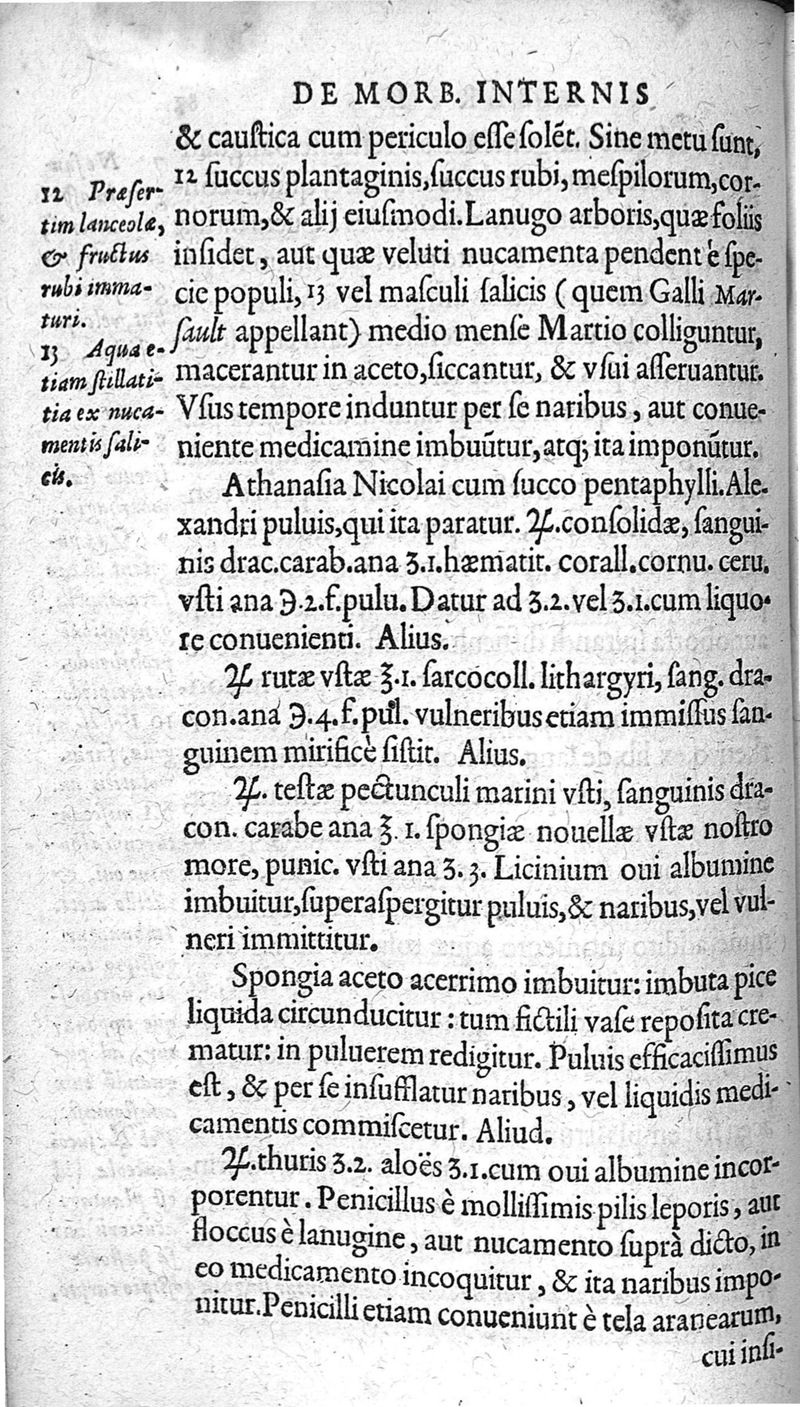 DE MORB. INTERNIS
& cauſtica cum periculo eſſe ſolẽt. Sine metu ſunt,
12 ſuccus plantaginis, ſuccus rubi, meſpilorum, cor-
norum, & alij eiuſmodi. Lanugo arboris, quæ foliis
inſidet, aut quæ veluti nucamenta pendent è ſpe-
cie populi, 13 vel maſculi ſalicis (quem Galli Mar-
ſault appellant) medio menſe Martio colliguntur,
macerantur in aceto, ſiccantur, & vſui aſſeruantur.
Vſus tempore induntur per ſe naribus, aut conue-
niente medicamine imbuũtur, atq; ita imponũtur.
12 Præſer-
tim lanceolæ,
& fructus
rubi imma-
turi.
13 Aqua e-
tiam ſtillati-
tia ex nuca-
mentis ſali-
cis.
Athanaſia Nicolai cum ſucco pentaphylli. Ale-
xandri puluis, qui ita paratur. ℞. conſolidæ, ſangui-
nis drac. carab. ana ʒ.1. hæmatit. corall. cornu. ceru.
vſti ana ℈.2. f. pulu. Datur ad ʒ.2. vel ʒ.1. cum liquo-
re conuenienti. Alius.
℞ rutæ vſtæ ℥.1. ſarcocoll. lithargyri, ſang. dra-
con. ana ℈.4. f. pul. vulneribus etiam immiſſus ſan-
guinem mirificè ſiſtit. Alius.
℞. teſtæ pectunculi marini vſti, ſanguinis dra-
con. carabe ana ℥. 1. ſpongiæ nouellæ vſtæ noſtro
more, punic. vſti ana ʒ. 3. Licinium oui albumine
imbuitur, ſuperaſpergitur puluis, & naribus, vel vul-
neri immittitur.
Spongia aceto acerrimo imbuitur: imbuta pice
liquida circunducitur: tum fictili vaſe repoſita cre-
matur: in puluerem redigitur. Puluis efficaciſſimus
eſt, & per ſe inſufflatur naribus, vel liquidis medi-
camentis commiſcetur. Aliud.
℞. thuris ʒ.2. aloës ʒ.1. cum oui albumine incor-
porentur. Penicillus è molliſſimis pilis leporis, aut
floccus è lanugine, aut nucamento ſuprà dicto, in
eo medicamento incoquitur, & ita naribus impo-
nitur. Penicilli etiam conueniunt è tela aranearum,
cui inſi-